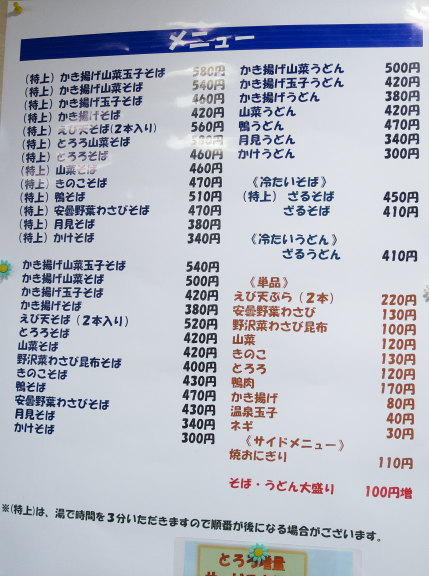 メニュー
(特上) かき揚げ山菜玉子そば 580円
(特上) かき揚げ山菜そば 540円
(特上) かき揚げ玉子そば 460円
(特上) かき揚げそば 420円
(特上) えび天そば(2本入り) 560円
(特上) とろろ山菜そば
(特上) とろろそば 460円
(特上) 山菜そば 460円
(特上) きのこそば 470円
(特上) 鴨そば 510円
(特上) 安曇野葉わさびそば 470円
(特上) 月見そば 380円
(特上) かけそば 340円
かき揚げ山菜玉子そば 540円
かき揚げ山菜そば 500円
かき揚げ玉子そば 420円
かき揚げそば 380円
えび天そば(2本入り) 520円
とろろそば 420円
山菜そば 420円
野沢菜わさび昆布そば 400円
きのこそば 430円
鴨そば 470円
安曇野葉わさびそば 430円
月見そば 340円
かけそば 300円
かき揚げ山菜うどん 500円
かき揚げ玉子うどん 420円
かき揚げうどん 380円
山菜うどん 420円
鴨うどん 470円
月見うどん 340円
かけうどん 300円
《冷たいそば》
(特上) ざるそば 450円
ざるそば 410円
《冷たいうどん》
ざるうどん 410円
《単品》
えび天ぷら(2本) 220円
安曇野葉わさび 130円
野沢菜わさび昆布 100円
山菜 120円
きのこ 130円
とろろ 120円
鴨肉 170円
かき揚げ 80円
温泉玉子 40円
ネギ 30円
《サイドメニュー》
焼おにぎり 110円
そば・うどん大盛り 100円増
※(特上)は、湯で時間を3分いただきますので順番が後になる場合がございます。
とろろ増量